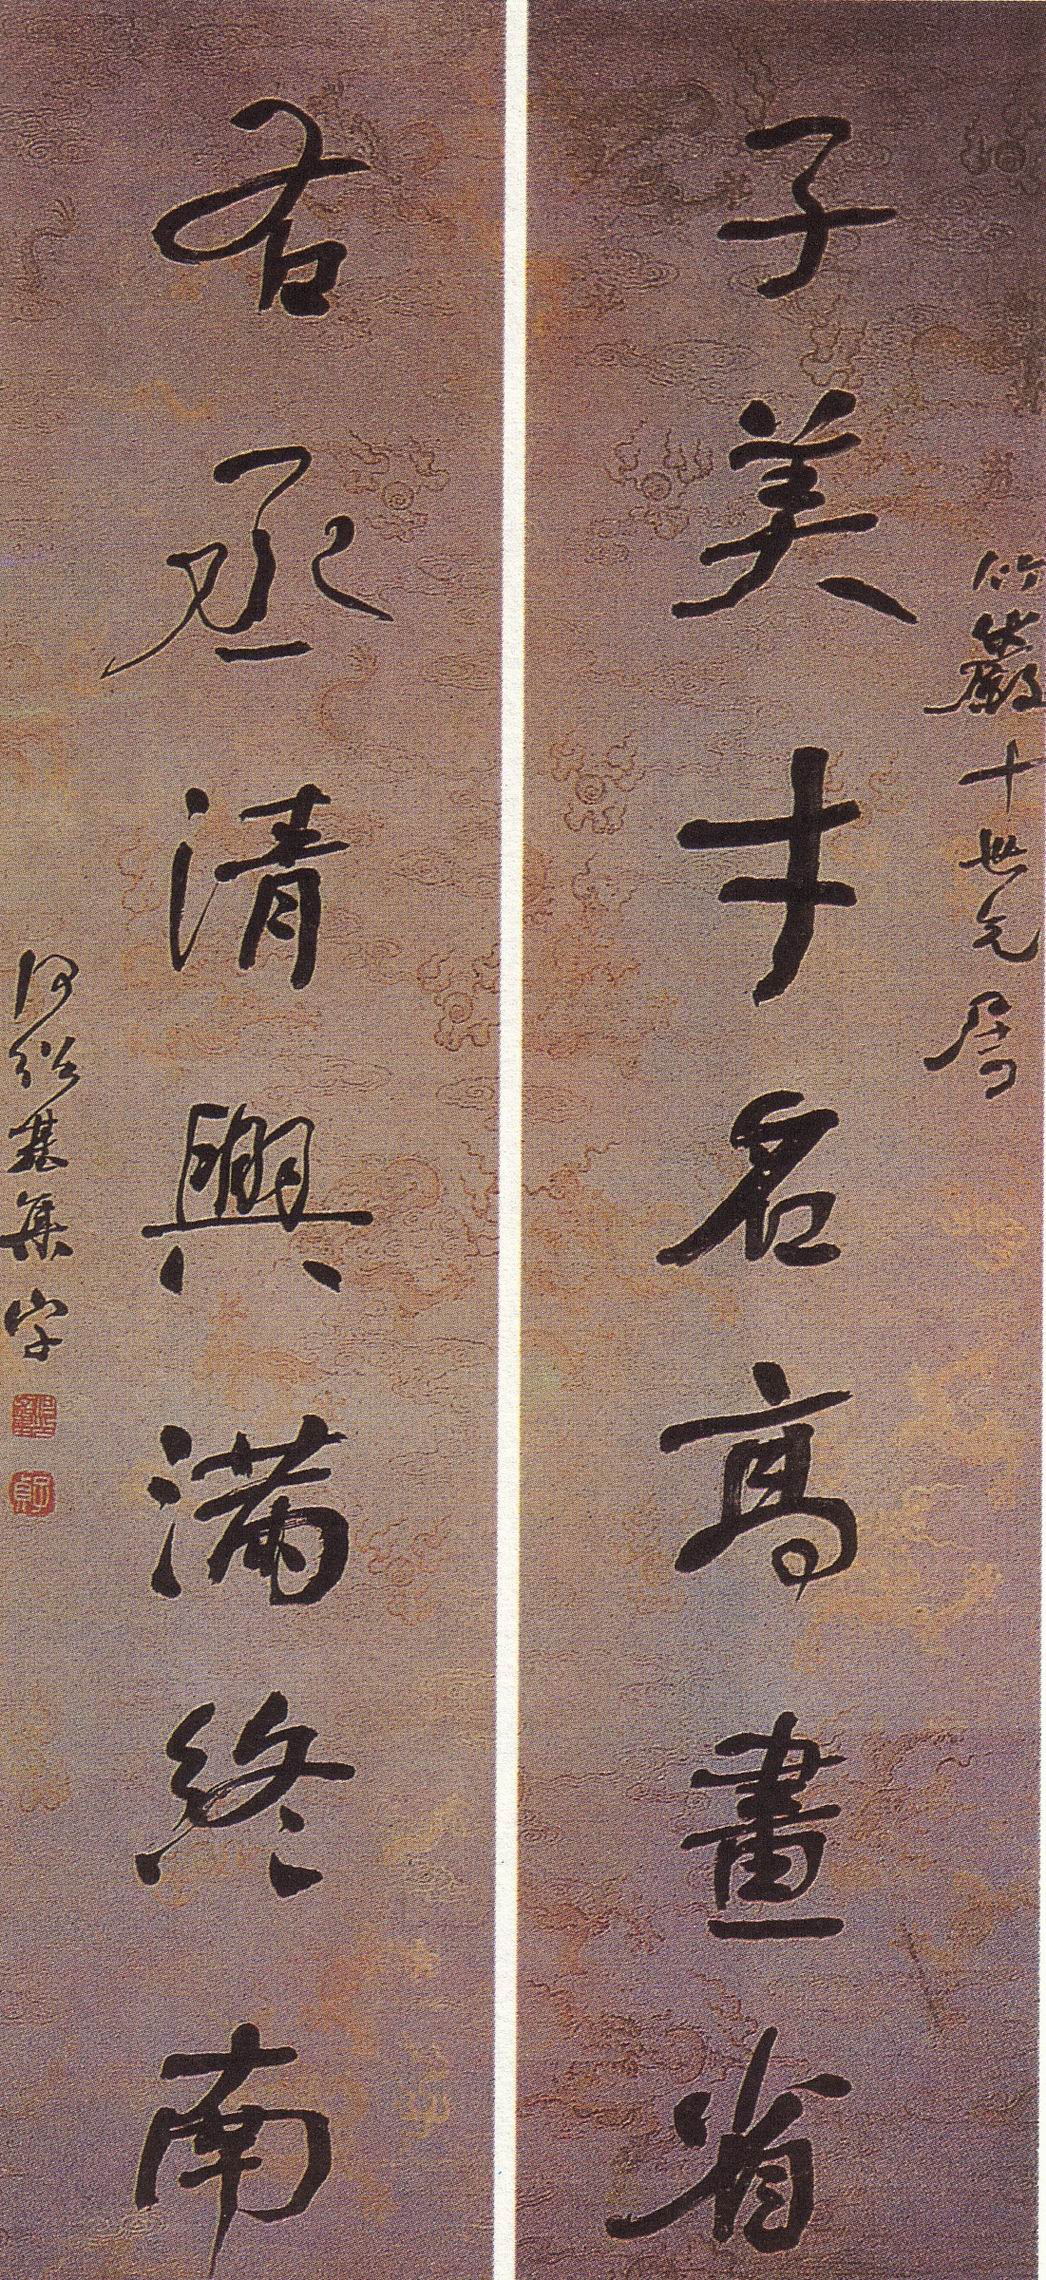 竹巖十世兄屬
子美才名高畫省
右丞清興滿終南
何紹基集字
子貞